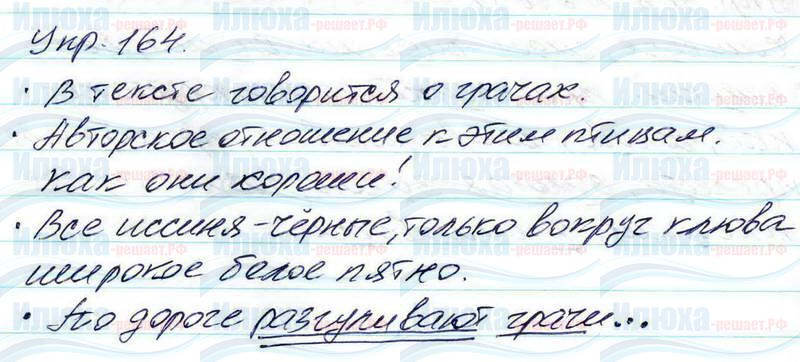 Упр. 164.
· В тексте говорится о грачах.
· Авторское отношение к этим птицам.
Как они хороши!
· Все иссиня-чёрные, только вокруг клюва
широкое белое пятно.
· По дороге разгуливают грачи...
Илюха-решает.РФ